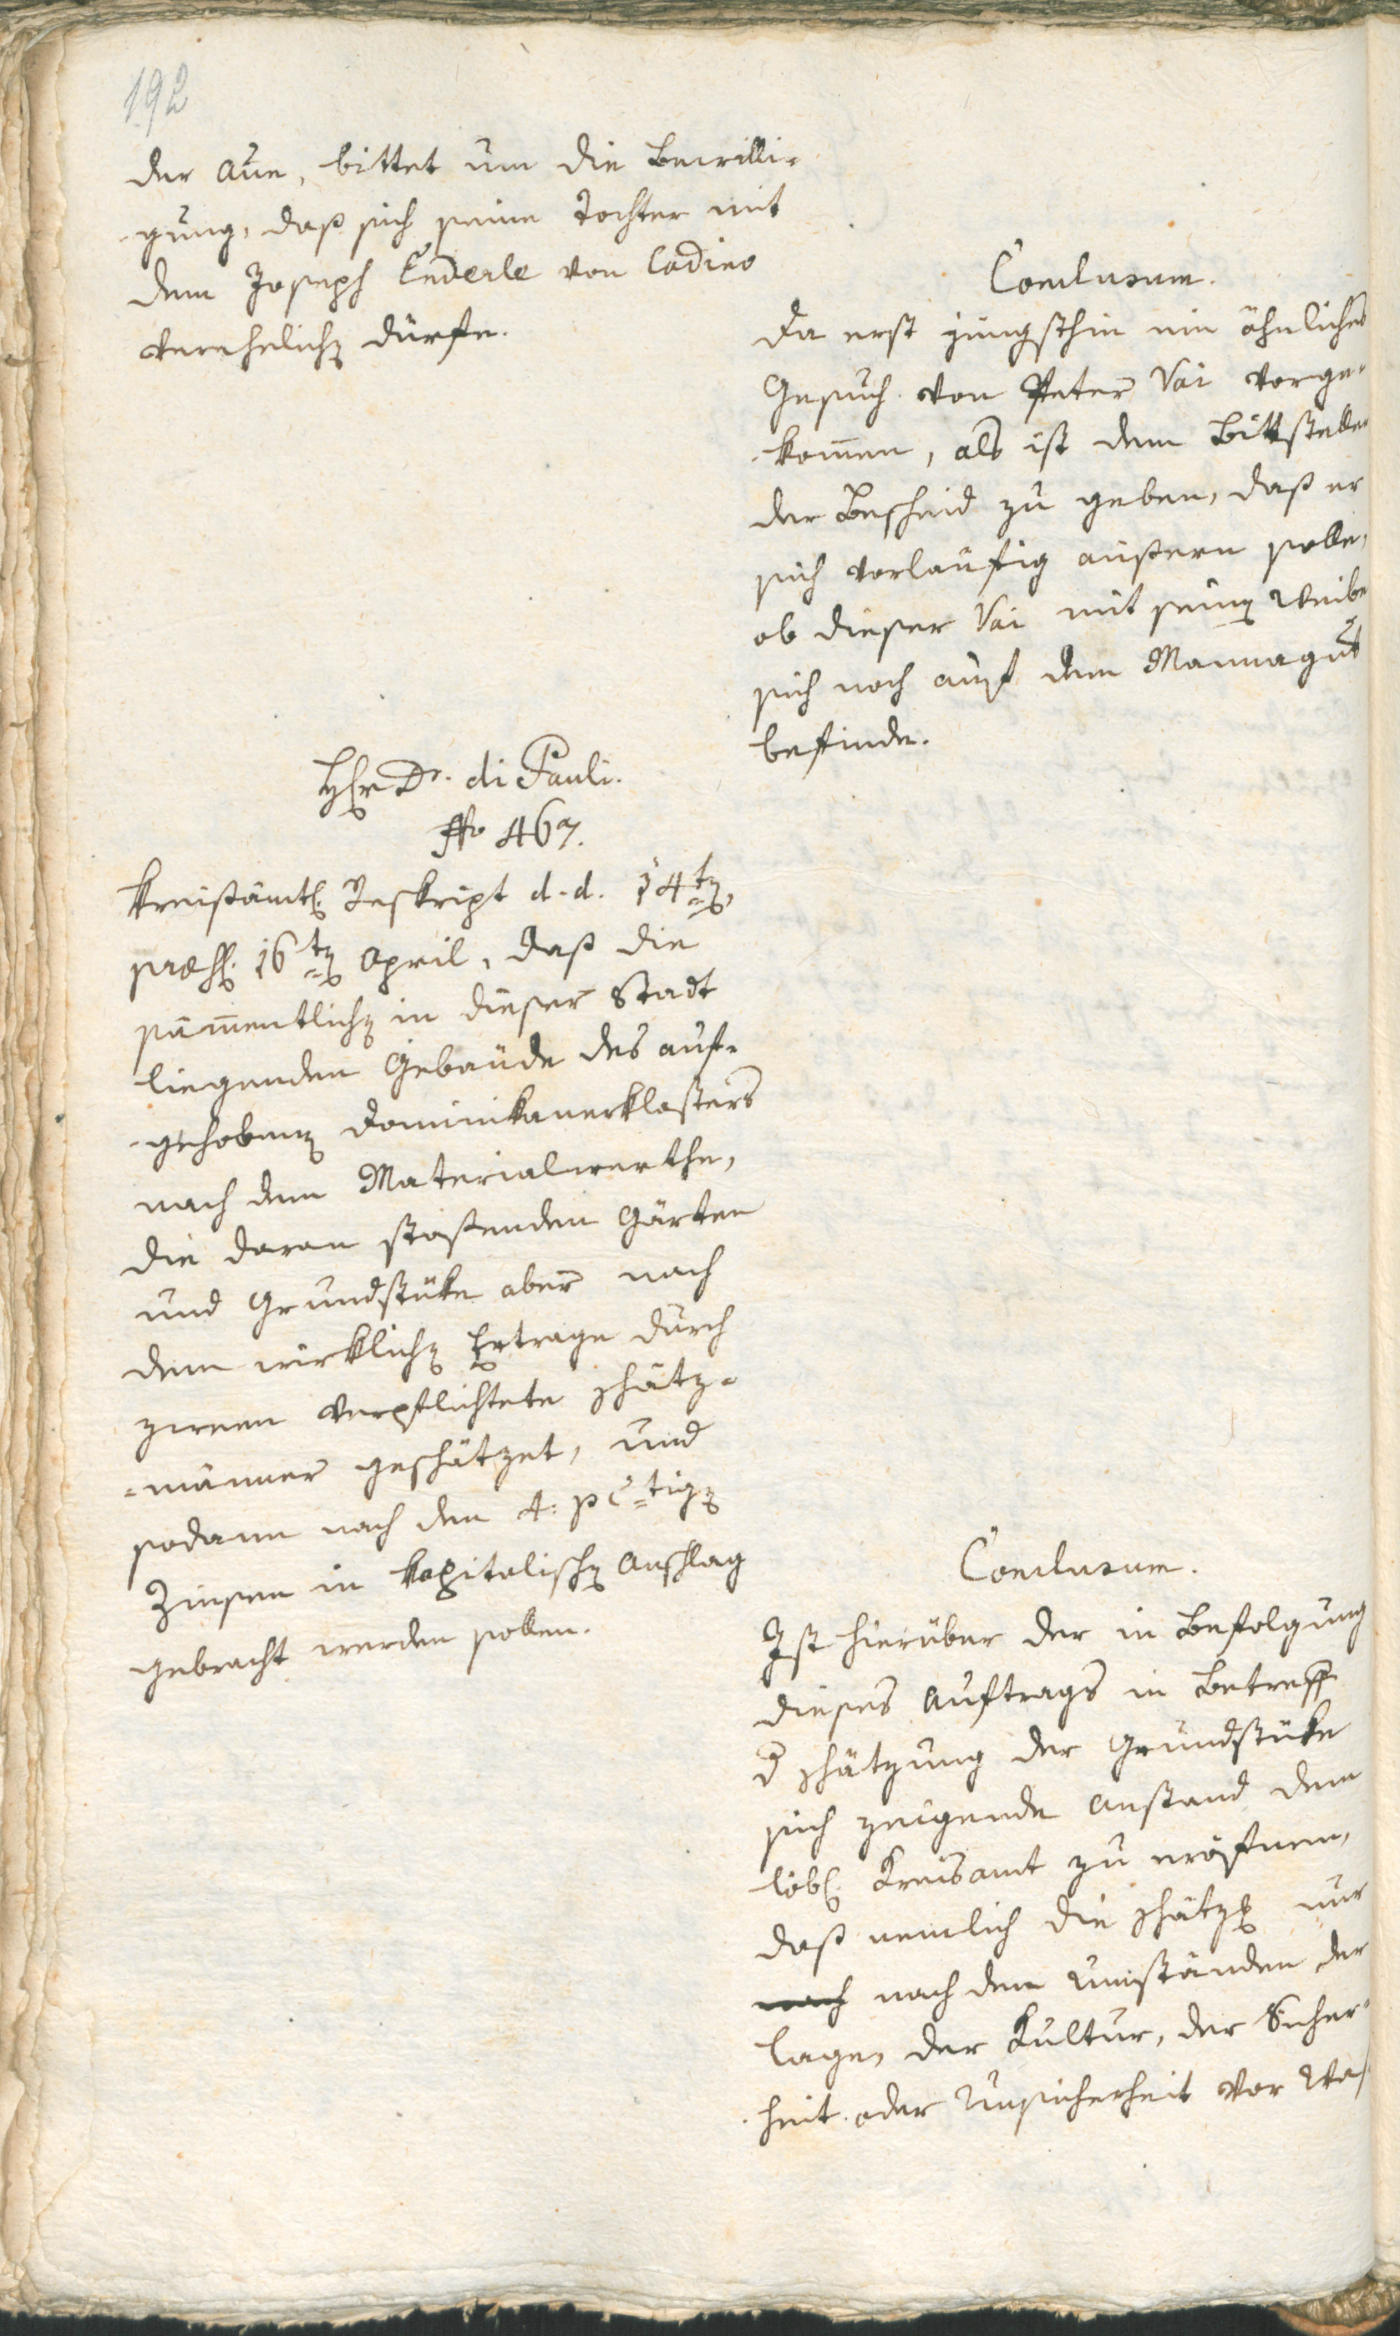 192
der Aue, bittet um die Bewilli-
-gung, daß sich seine Tochter mit
dem Joseph Enderle von Cadino
verehelichen dürfe.
Conclusum.
Da erst jüngsthin ein ähnliches
Gesuch von Peter Vai vorge-
-kom̄en, als ist dem Bittsteller
der Bescheid zu geben, daß er
sich vorläufig äußern solle,
ob dieser Vai mit seinem Weibe
sich noch auf dem Mannagut
befinde.
Hr Dr. di Pauli.
No 467.
Kreisämtl. Reskript d. d. 14ten,
præs. 16ten April, daß die
sämmentlichen in dieser Stadt
liegenden Gebäude des auf-
-gehobenen Dominikanerklosters
nach dem Materialwerthe,
die daran stossenden Gärten
und Grundstüke aber nach
dem wirklichen Ertrage durch
zween verpflichtete Schätz-
-männer geschätzet, und
sodann nach den 4: pC-tigen
Zinsen in kapitalischen Anschlag
gebracht werden sollen.
Conclusum.
Ist hierüber der in Befolgung
dieses Auftrags in Betreff
d Schätzung der Grundstüke
sich zeigende Anstand dem
löbl. Kreisamt zu eröfnen,
daß nemlich die Schätzer nur
nach nach den Umständen der
Lage, der Kultur, der Sicher-
-heit oder Unsicherheit vor Was